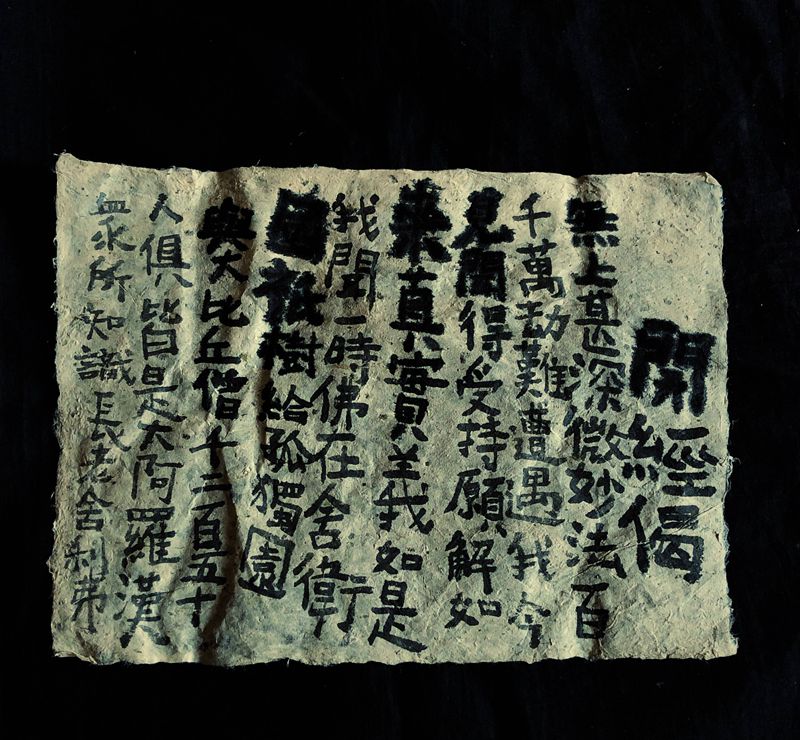 開經偈
無上甚深微妙法百
千萬劫難遭遇我今
見聞得受持願解如
來真實義如是
我聞一時佛在舍衛
國祇樹給孤獨園
與大比丘僧千二百五十
人俱皆是大阿羅漢
衆所知識長老舍利弗